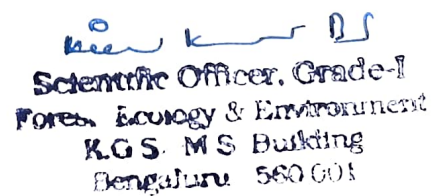 Scientific Officer, Grade-I
Forest, Ecology & Environment
K.G.S. M S Building
Bengaluru 560 001